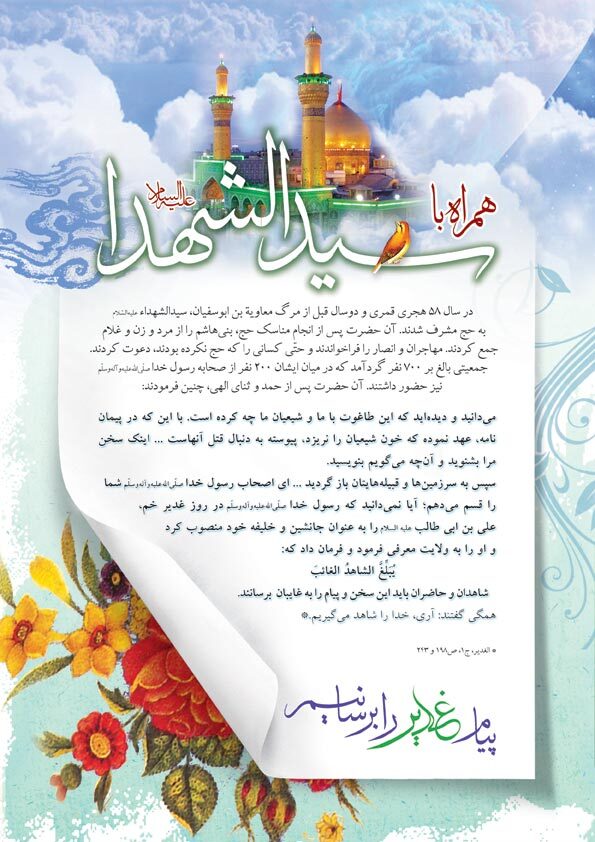 همراه با
سیدالشهدا علیه‌السلام
در سال ۵۸ هجری قمری و دوسال قبل از مرگ معاویة بن ابوسفیان، سیدالشهداء علیه‌السلام
به حج مشرف شدند. آن حضرت پس از انجام مناسک حج، بنی‌هاشم را از مرد و زن و غلام
جمع کردند. مهاجران و انصار را فراخواندند و حتّی کسانی را که حج نکرده بودند، دعوت کردند.
جمعیتی بالغ بر ۷۰۰ نفر گردآمد که در میان ایشان ۲۰۰ نفر از صحابه رسول خدا صلّی‌الله‌علیه‌وآله‌وسلّم
نیز حضور داشتند. آن حضرت پس از حمد و ثنای الهی، چنین فرمودند:
می‌دانید و دیده‌اید که این طاغوت با ما و شیعیان ما چه کرده است. با این که در پیمان
نامه، عهد نموده که خون شیعیان را نریزد، پیوسته به دنبال قتل آنهاست ... اینک سخن
مرا بشنوید و آن‌چه می‌گویم بنویسید.
سپس به سرزمین‌ها و قبیله‌هایتان باز گردید ... ای اصحاب رسول خدا صلّی‌الله‌علیه‌وآله‌وسلّم شما
را قسم می‌دهم؛ آیا نمی‌دانید که رسول خدا صلّی‌الله‌علیه‌وآله‌وسلّم در روز غدیر خم،
علی بن ابی طالب علیه السلام را به عنوان جانشین و خلیفه خود منصوب کرد
و او را به ولایت معرفی فرمود و فرمان داد که:
یُبَلِّغَّ الشاهدُ الغائبَ
شاهدان و حاضران باید این سخن و پیام را به غایبان برسانند.
همگی گفتند: آری، خدا را شاهد می‌گیریم.*
* الغدیر، ج۱، ص۱۹۸ و ۲۴۳
پیام غدیر را برسانیم